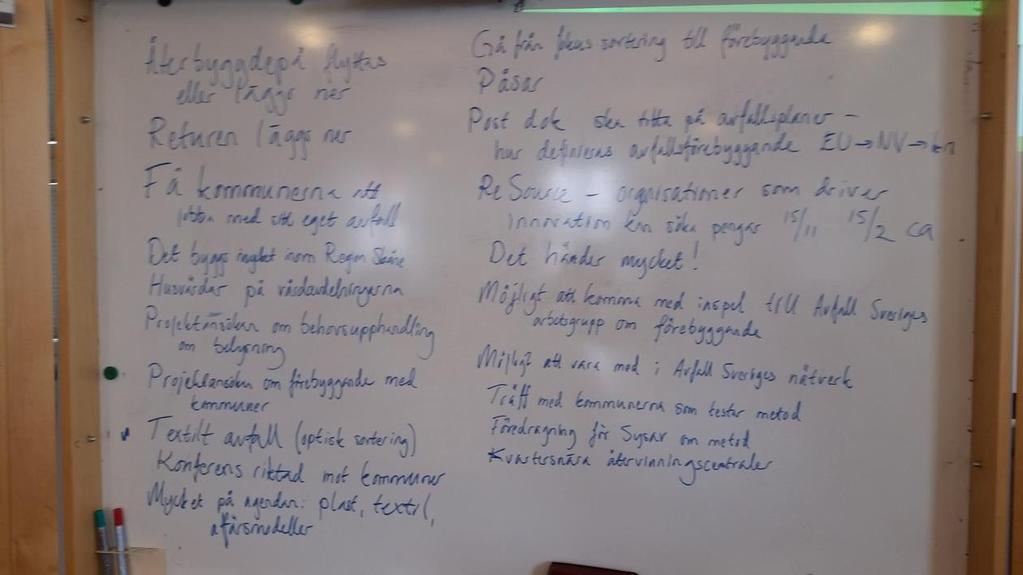 Återbyggdepå flyttas
eller läggs ner
Returen läggs ner
Få kommunerna att
jobba med sitt eget avfall
Det byggs mycket inom Region Skåne
Husvärdar på vårdavdelningarna
Projektansökan om behovsupphandling
om belysning
Projektansökan om förebyggande med
kommuner
Textilt avfall (optisk sortering)
Konferens riktad mot kommuner
Mycket på agendan: plast, textil,
affärsmodeller
Gå från fokus sortering till förebyggande
Påsar
Post dok ska titta på avfallsplaner –
hur definieras avfallsförebyggande EU→NV→
ReSource – orgnisationer som driver
innovation kan söka pengar 15/11 15/2 ca
Det händer mycket!
Möjligt att komma med inspel till Avfall Sveriges
arbetsgrupp om förebyggande
Möjligt att vara med i Avfall Sveriges nätverk
Träff med kommunerna som testar metod
Föredragning för Sysav om metod
Kvartersnära återvinningscentraler